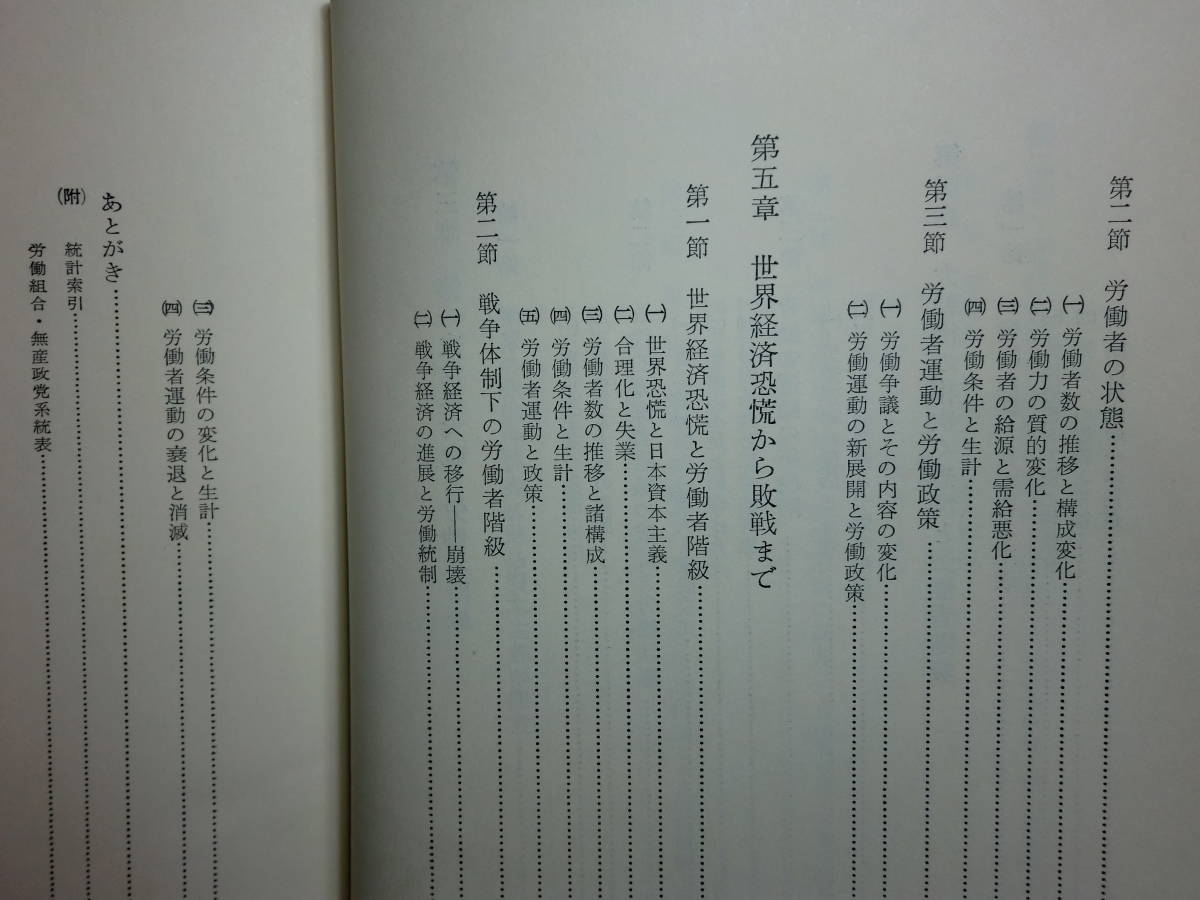 第二節 労働者の状態……………………………
㈠ 労働者数の推移と構成変化……………………………
㈡ 労働力の質的変化……………………………
㈢ 労働者の給源と需給悪化……………………………
㈣ 労働条件と生計……………………………
第三節 労働者運動と労働政策……………………………
㈠ 労働争議とその内容の変化……………………………
㈡ 労働運動の新展開と労働政策……………………………
第五章 世界経済恐慌から敗戦まで
第一節 世界経済恐慌と労働者階級……………………………
㈠ 世界恐慌と日本資本主義……………………………
㈡ 合理化と失業……………………………
㈢ 労働者数の推移と諸構成……………………………
㈣ 労働条件と生計……………………………
㈤ 労働者運動と政策……………………………
第二節 戦争体制下の労働者階級……………………………
㈠ 戦争経済への移行――崩壊……………………………
㈡ 戦争経済の進展と労働統制……………………………
㈢ 労働条件の変化と生計……………………………
㈣ 労働者運動の衰退と消滅……………………………
あとがき……………………………
(附) 統計索引……………………………
労働組合・無産政党系統表……………………………